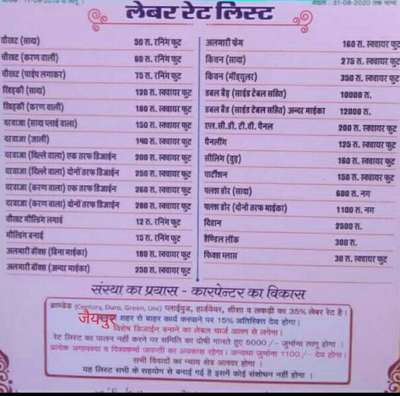 11-09-2019 से लागू
31-08-2020 तक मान्य
लेबर रेट लिस्ट
चौखट (सादा) 50 रु. रनिंग फुट
चौखट (करण वाली) 60 रु. रनिंग फुट
चौखट (पाइप लगाकर) 75 रु. रनिंग फुट
खिड़की (सादा) 120 रु. स्क्वायर फुट
खिड़की (करण वाली) 180 रु. स्क्वायर फुट
दरवाजा (सादा प्लाई वाला) 150 रु. स्क्वायर फुट
दरवाजा (जाली) 140 रु. स्क्वायर फुट
दरवाजा (दिल्ले वाला) एक तरफ डिजाईन 200 रु. स्क्वायर फुट
दरवाजा (दिल्ले वाला) दोनों तरफ डिजाईन 250 रु. स्क्वायर फुट
दरवाजा (करण वाला) एक तरफ डिजाईन 260 रु. स्क्वायर फुट
दरवाजा (करण वाला) दोनों तरफ डिजाईन 280 रु. स्क्वायर फुट
चौखट मौल्डिंग लगाई 12 रु. रनिंग फुट
मौल्डिंग बनाई 15 रु. रनिंग फुट
अलमारी बॉक्स (बिना माईका) 180 रु. स्क्वायर फुट
अलमारी बॉक्स (अन्दर माईका) 250 रु. स्क्वायर फुट
अलमारी फ्रेम 160 रु. स्क्वायर फुट
किचन (सादा) 275 रु. स्क्वायर फुट
किचन (मॉड्यूलर) 350 रु. स्क्वायर फुट
डबल बैड (साईड टेबल सहित) 10000 रु.
डबल बैड (साईड टेबल सहित) अन्दर माईका 12000 रु.
एल.सी.डी. टी.वी. पैनल 200 रु. स्क्वायर फुट
पैनलींग 125 रु. स्क्वायर फुट
सीलिंग (वुड) 160 रु. स्क्वायर फुट
पार्टीशन 150 रु. स्क्वायर फुट
फ्लश डोर (सादा) 600 रु. नग
फ्लश डोर (दोनों तरफ माईका) 1100 रु. नग
दिवान 2500 रु.
हैण्डिल लॉक 300 रु.
फिक्स ग्लास 30 रु. स्क्वायर फुट
संस्था का प्रयास - कारपेन्टर का विकास
ब्राण्डेड (Century, Duro, Green, Uni) प्लाईवुड, हार्डवेयर, शीशा व लकड़ी का 35% लेबर रेट है।
जैयपुर शहर से बाहर कार्य करवाने पर 15% अतिरिक्त देय होगा।
विशेष डिजाईन बनाने का लेबल चार्ज अलग से लगेगा।
रेट लिस्ट का पालन नहीं करने पर समिति का दोषी मानते हुए 5000/- जुर्माना लागू होगा।
प्रत्येक अमावस्या व विश्वकर्मा जयन्ती का अवकाश रहेगा। अन्यथा जुर्माना 1100/- देय होगा।
सभी विवादों का न्याय क्षेत्र होगा।
यह लिस्ट सभी के सहयोग से बनाई गई है इसमें कोई संशोधन नहीं होगा।